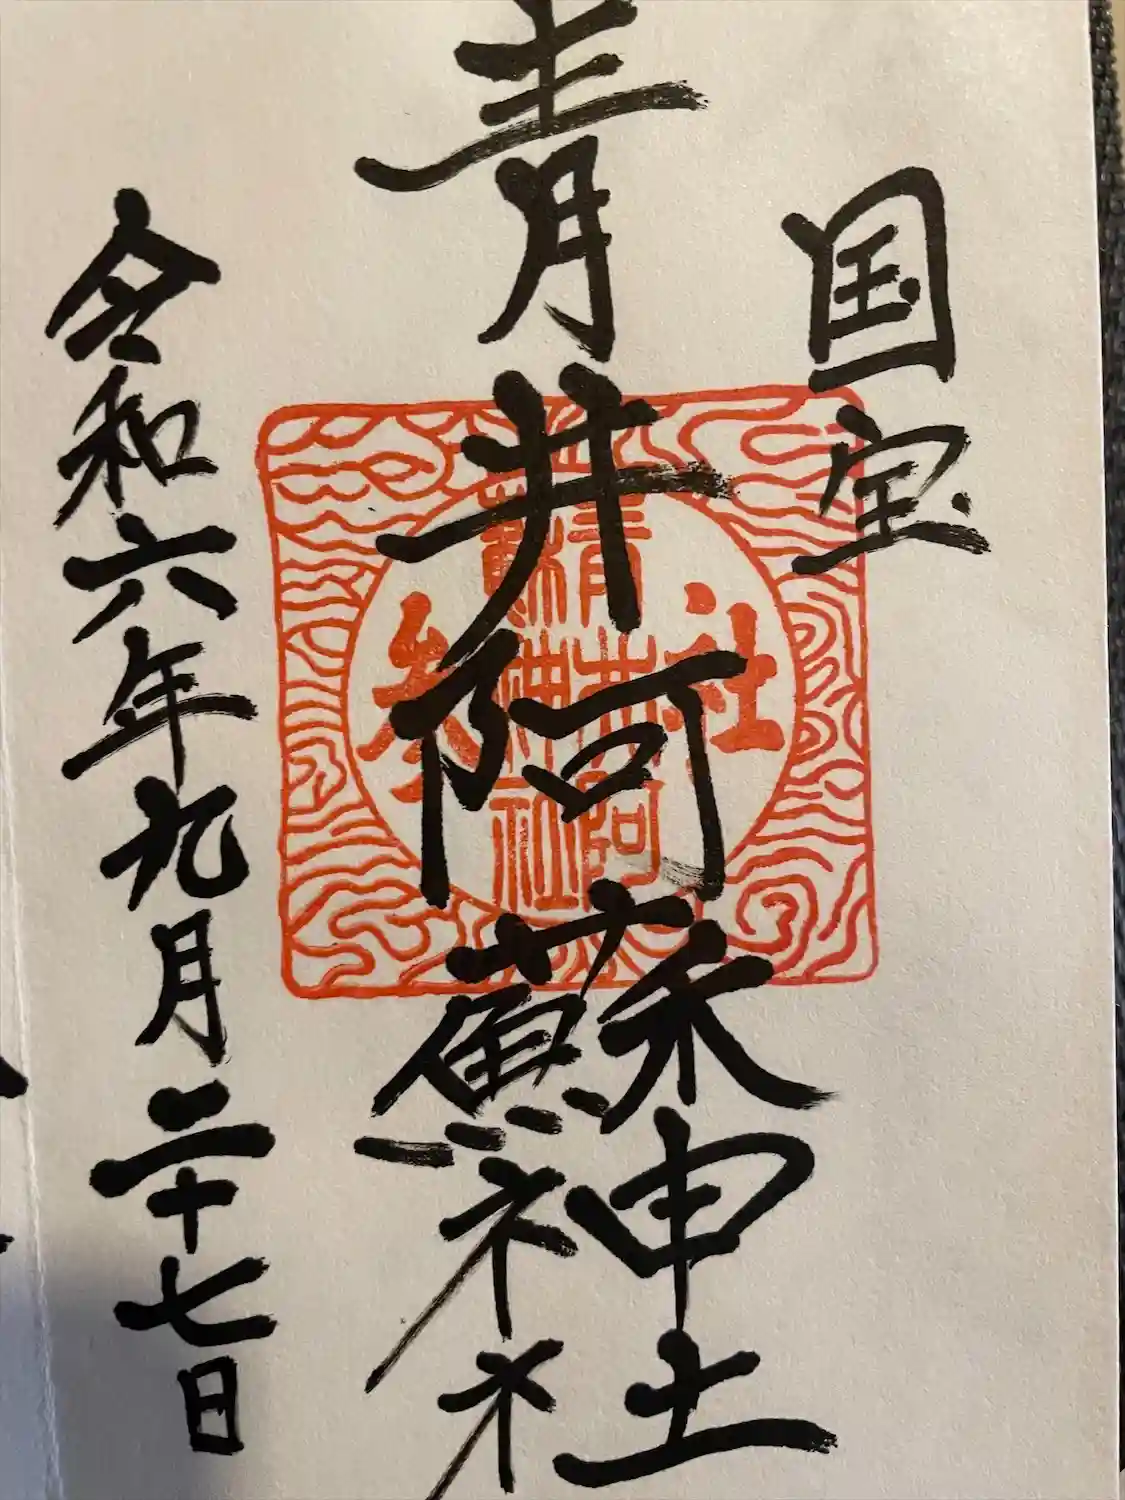 国宝
青井阿蘇神社
社参
青井阿
蘇神社
令和六年九月二十七日